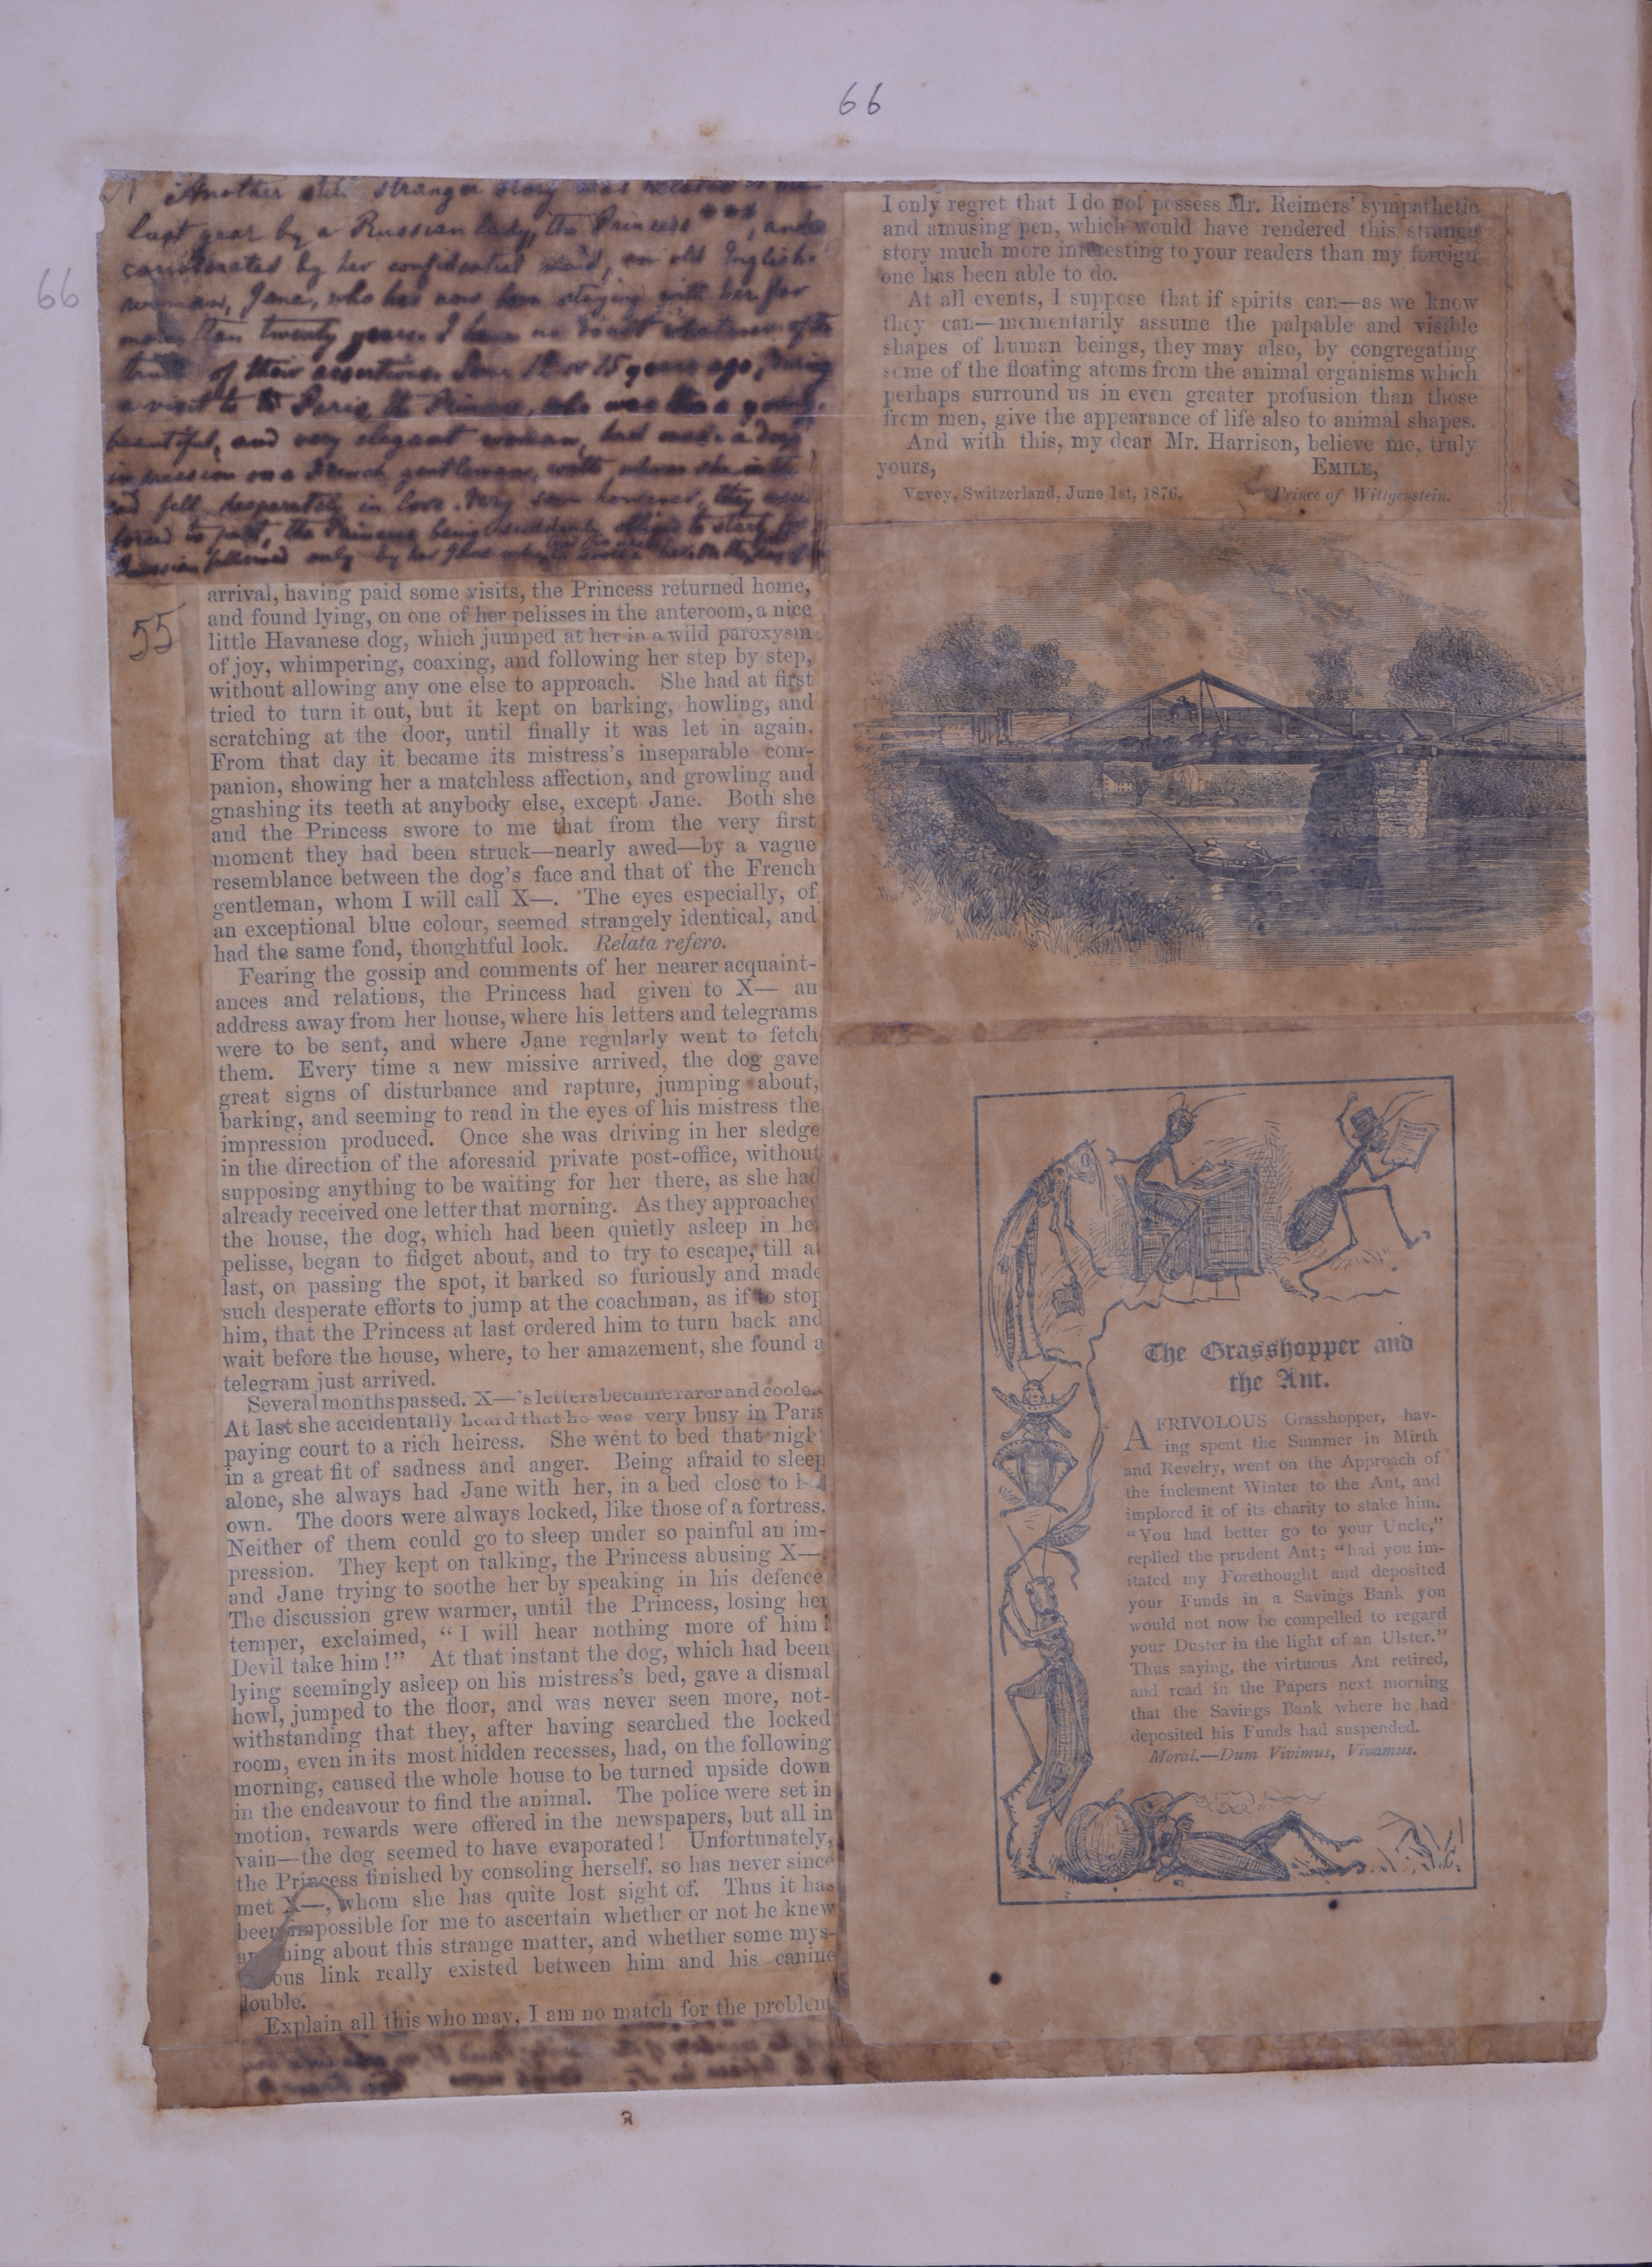 66
66
Another still stranger story was related to me
last year by a Russian lady, the Princess ***, and
corroborated by her confidential maid, an old English-
woman, Jane, who has now been staying with her for
more than twenty years. I have no doubt whatever of the
truth of their assertions. Some 12 or 15 years ago, during
a visit to Paris, the Princess, who was then a young,
beautiful, and very elegant woman, had made a deep
impression on a French gentleman, with whom she
and fell desperately in love. Very soon however, they were
forced to part, the Princess being suddenly obliged to start for
Russia, followed only by her Jane
55
arrival, having paid some visits, the Princess returned home,
and found lying, on one of her pelisses in the anteroom, a nice
little Havanese dog, which jumped at her in a wild paroxysm
of joy, whimpering, coaxing, and following her step by step,
without allowing any one else to approach. She had at first
tried to turn it out, but it kept on barking, howling, and
scratching at the door, until finally it was let in again.
From that day it became its mistress's inseparable com-
panion, showing her a matchless affection, and growling and
gnashing its teeth at anybody else, except Jane. Both she
and the Princess swore to me that from the very first
moment they had been struck—nearly awed—by a vague
resemblance between the dog's face and that of the French
gentleman, whom I will call X—. The eyes especially, of
an exceptional blue colour, seemed strangely identical, and
had the same fond, thoughtful look. Relata refero.
Fearing the gossip and comments of her nearer acquaint-
ances and relations, the Princess had given to X— an
address away from her house, where his letters and telegrams
were to be sent, and where Jane regularly went to fetch
them. Every time a new missive arrived, the dog gave
great signs of disturbance and rapture, jumping about,
barking, and seeming to read in the eyes of his mistress the
impression produced. Once she was driving in her sledge
in the direction of the aforesaid private post-office, without
supposing anything to be waiting for her there, as she had
already received one letter that morning. As they approached
the house, the dog, which had been quietly asleep in he
pelisse, began to fidget about, and to try to escape, till at
last, on passing the spot, it barked so furiously and made
such desperate efforts to jump at the coachman, as if to stop
him, that the Princess at last ordered him to turn back and
wait before the house, where, to her amazement, she found a
telegram just arrived.
Several months passed. X—'s letters became rarer and coole
At last she accidentally heard that he was very busy in Paris
paying court to a rich heiress. She went to bed that nigh
in a great fit of sadness and anger. Being afraid to sleep
alone, she always had Jane with her, in a bed close to h
own. The doors were always locked, like those of a fortress.
Neither of them could go to sleep under so painful an im-
pression. They kept on talking, the Princess abusing X—,
and Jane trying to soothe her by speaking in his defence
The discussion grew warmer, until the Princess, losing her
temper, exclaimed, "I will hear nothing more of him!
Devil take him!" At that instant the dog, which had been
lying seemingly asleep on his mistress's bed, gave a dismal
howl, jumped to the floor, and was never seen more, not-
withstanding that they, after having searched the locked
room, even in its most hidden recesses, had, on the following
morning, caused the whole house to be turned upside down
in the endeavour to find the animal. The police were set in
motion, rewards were offered in the newspapers, but all in
vain—the dog seemed to have evaporated! Unfortunately,
the Princess finished by consoling herself, so has never since
met X—, whom she has quite lost sight of. Thus it has
been impossible for me to ascertain whether or not he knew
an hing about this strange matter, and whether some mys-
ous link really existed between him and his canine
double.
Explain all this who may, I am no match for the problem
I only regret that I do not possess Mr. Reimers' sympathetic
and amusing pen, which would have rendered this strange
story much more interesting to your readers than my foreign
one has been able to do.
At all events, I suppose that if spirits can—as we know
they can—momentarily assume the palpable and visible
shapes of human beings, they may also, by congregating
some of the floating atoms from the animal organisms which
perhaps surround us in even greater profusion than those
from men, give the appearance of life also to animal shapes.
And with this, my dear Mr. Harrison, believe me, truly
yours, EMILE,
Vevey, Switzerland, June 1st, 1876. Prince of Wittgenstein.
The Grasshopper and
the Ant.
A FRIVOLOUS Grasshopper, hav-
ing spent the Summer in Mirth
and Revelry, went on the Approach of
the inclement Winter to the Ant, and
implored it of its charity to stake him.
"You had better go to your Uncle,"
replied the prudent Ant; "had you im-
itated my Forethought and deposited
your Funds in a Savings Bank you
would not now be compelled to regard
your Duster in the light of an Ulster."
Thus saying, the virtuous Ant retired,
and read in the Papers next morning
that the Savings Bank where he had
deposited his Funds had suspended.
Moral.—Dum Vivimus, Vivamus.